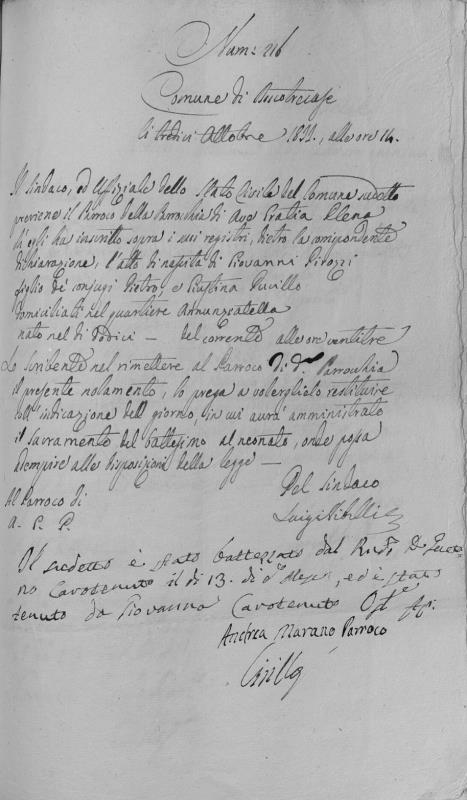 Num: 216
Comune di Boscotrecase
li tredici Ottobre 1831, alle ore 14.
Il Sindaco, ed Uffiziale dello Stato Civile del Comune sudetto
previene il Parroco della Parrocchia di Ave Gratia Plena
di egli ha inscritto sopra i suoi registri, dietro la corrispondente
dichiarazione, l'atto di nascita di Giovanni Pirozzi
figlio de' conjugi Pietro, e Giustina
domiciliati nel quartiere Annunziatella
nato nel dì dodici — del corrente alle ore ventitre
Lo Scribente nel rimettere al Parroco di da. Parrocchia
il presente notamento, lo prega a volerglielo restituire
coll'indicazione del giorno, in cui avrà amministrato
il Sacramento del battesimo al neonato, onde possa
adempire alle disposizioni della legge —
Pel Sindaco
Al Parroco di
A. G. P.
Luigi
Il sudetto è stato battezzato dal Revdo. D. Gaeta
no Cavotenuto il dì 13. di do. Mese, ed è stato
tenuto da Giovanna Cavotenuto
Andrea Marano Parroco
Cirillo